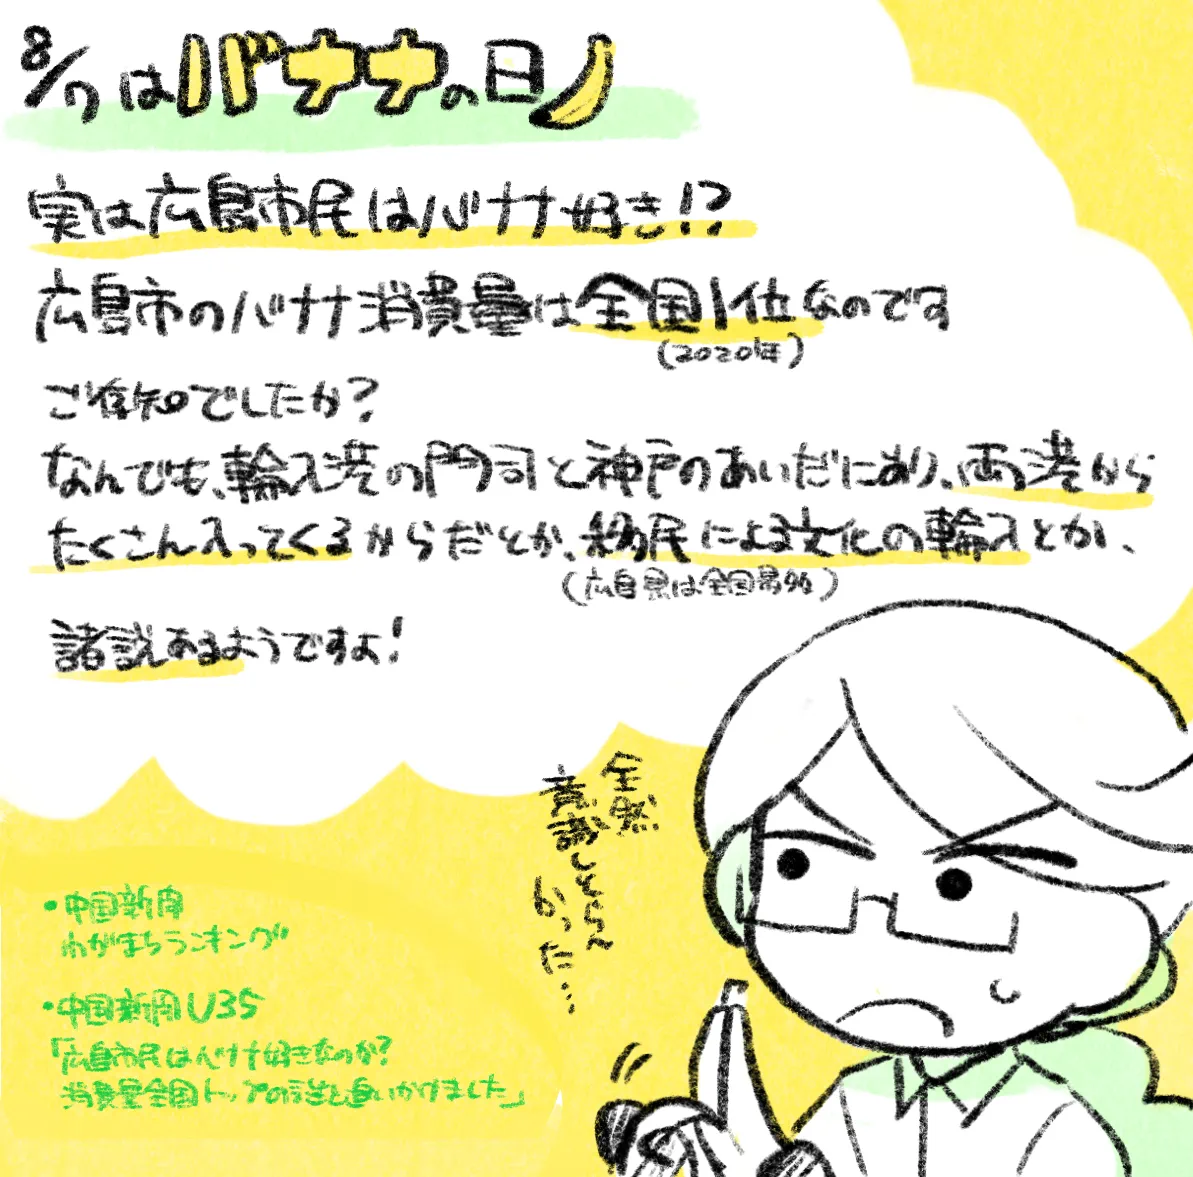 8/7はバナナの日
実は広島市民はバナナ好き!?
広島市のバナナ消費量は全国1位なのです
(2020年)
ご存知でしたか?
なんでも、輸入港の門司と神戸のあいだにあり、両港から
たくさん入ってくるからだとか、移民による文化の輸入とか、
(広島県は全国最多)
諸説あるようですよ!
全然
意識しとらん
かった…
・中国新聞
わがまちランキング
・中国新聞U35
「広島市民はバナナ好きなのか?
消費量全国トップの謎を追いかけました」